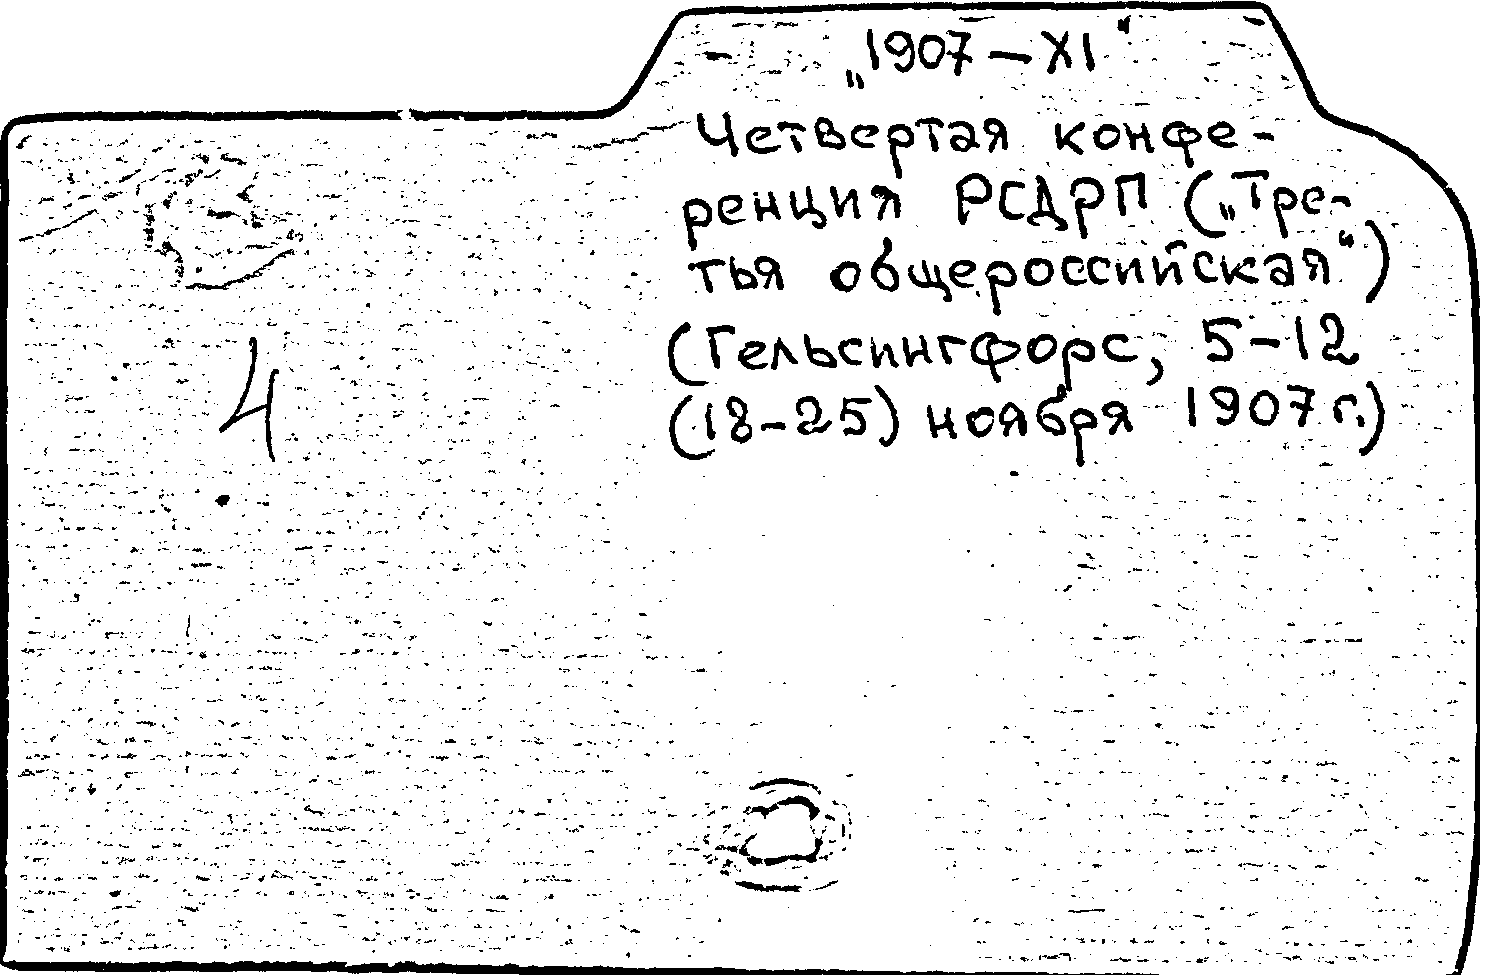 „1907 — XI“
Четвертая конфе-
ренция РСДРП („Тре-
тья общероссийская“)
(Гельсингфорс, 5-12
(18-25) ноября 1907 г.)
4